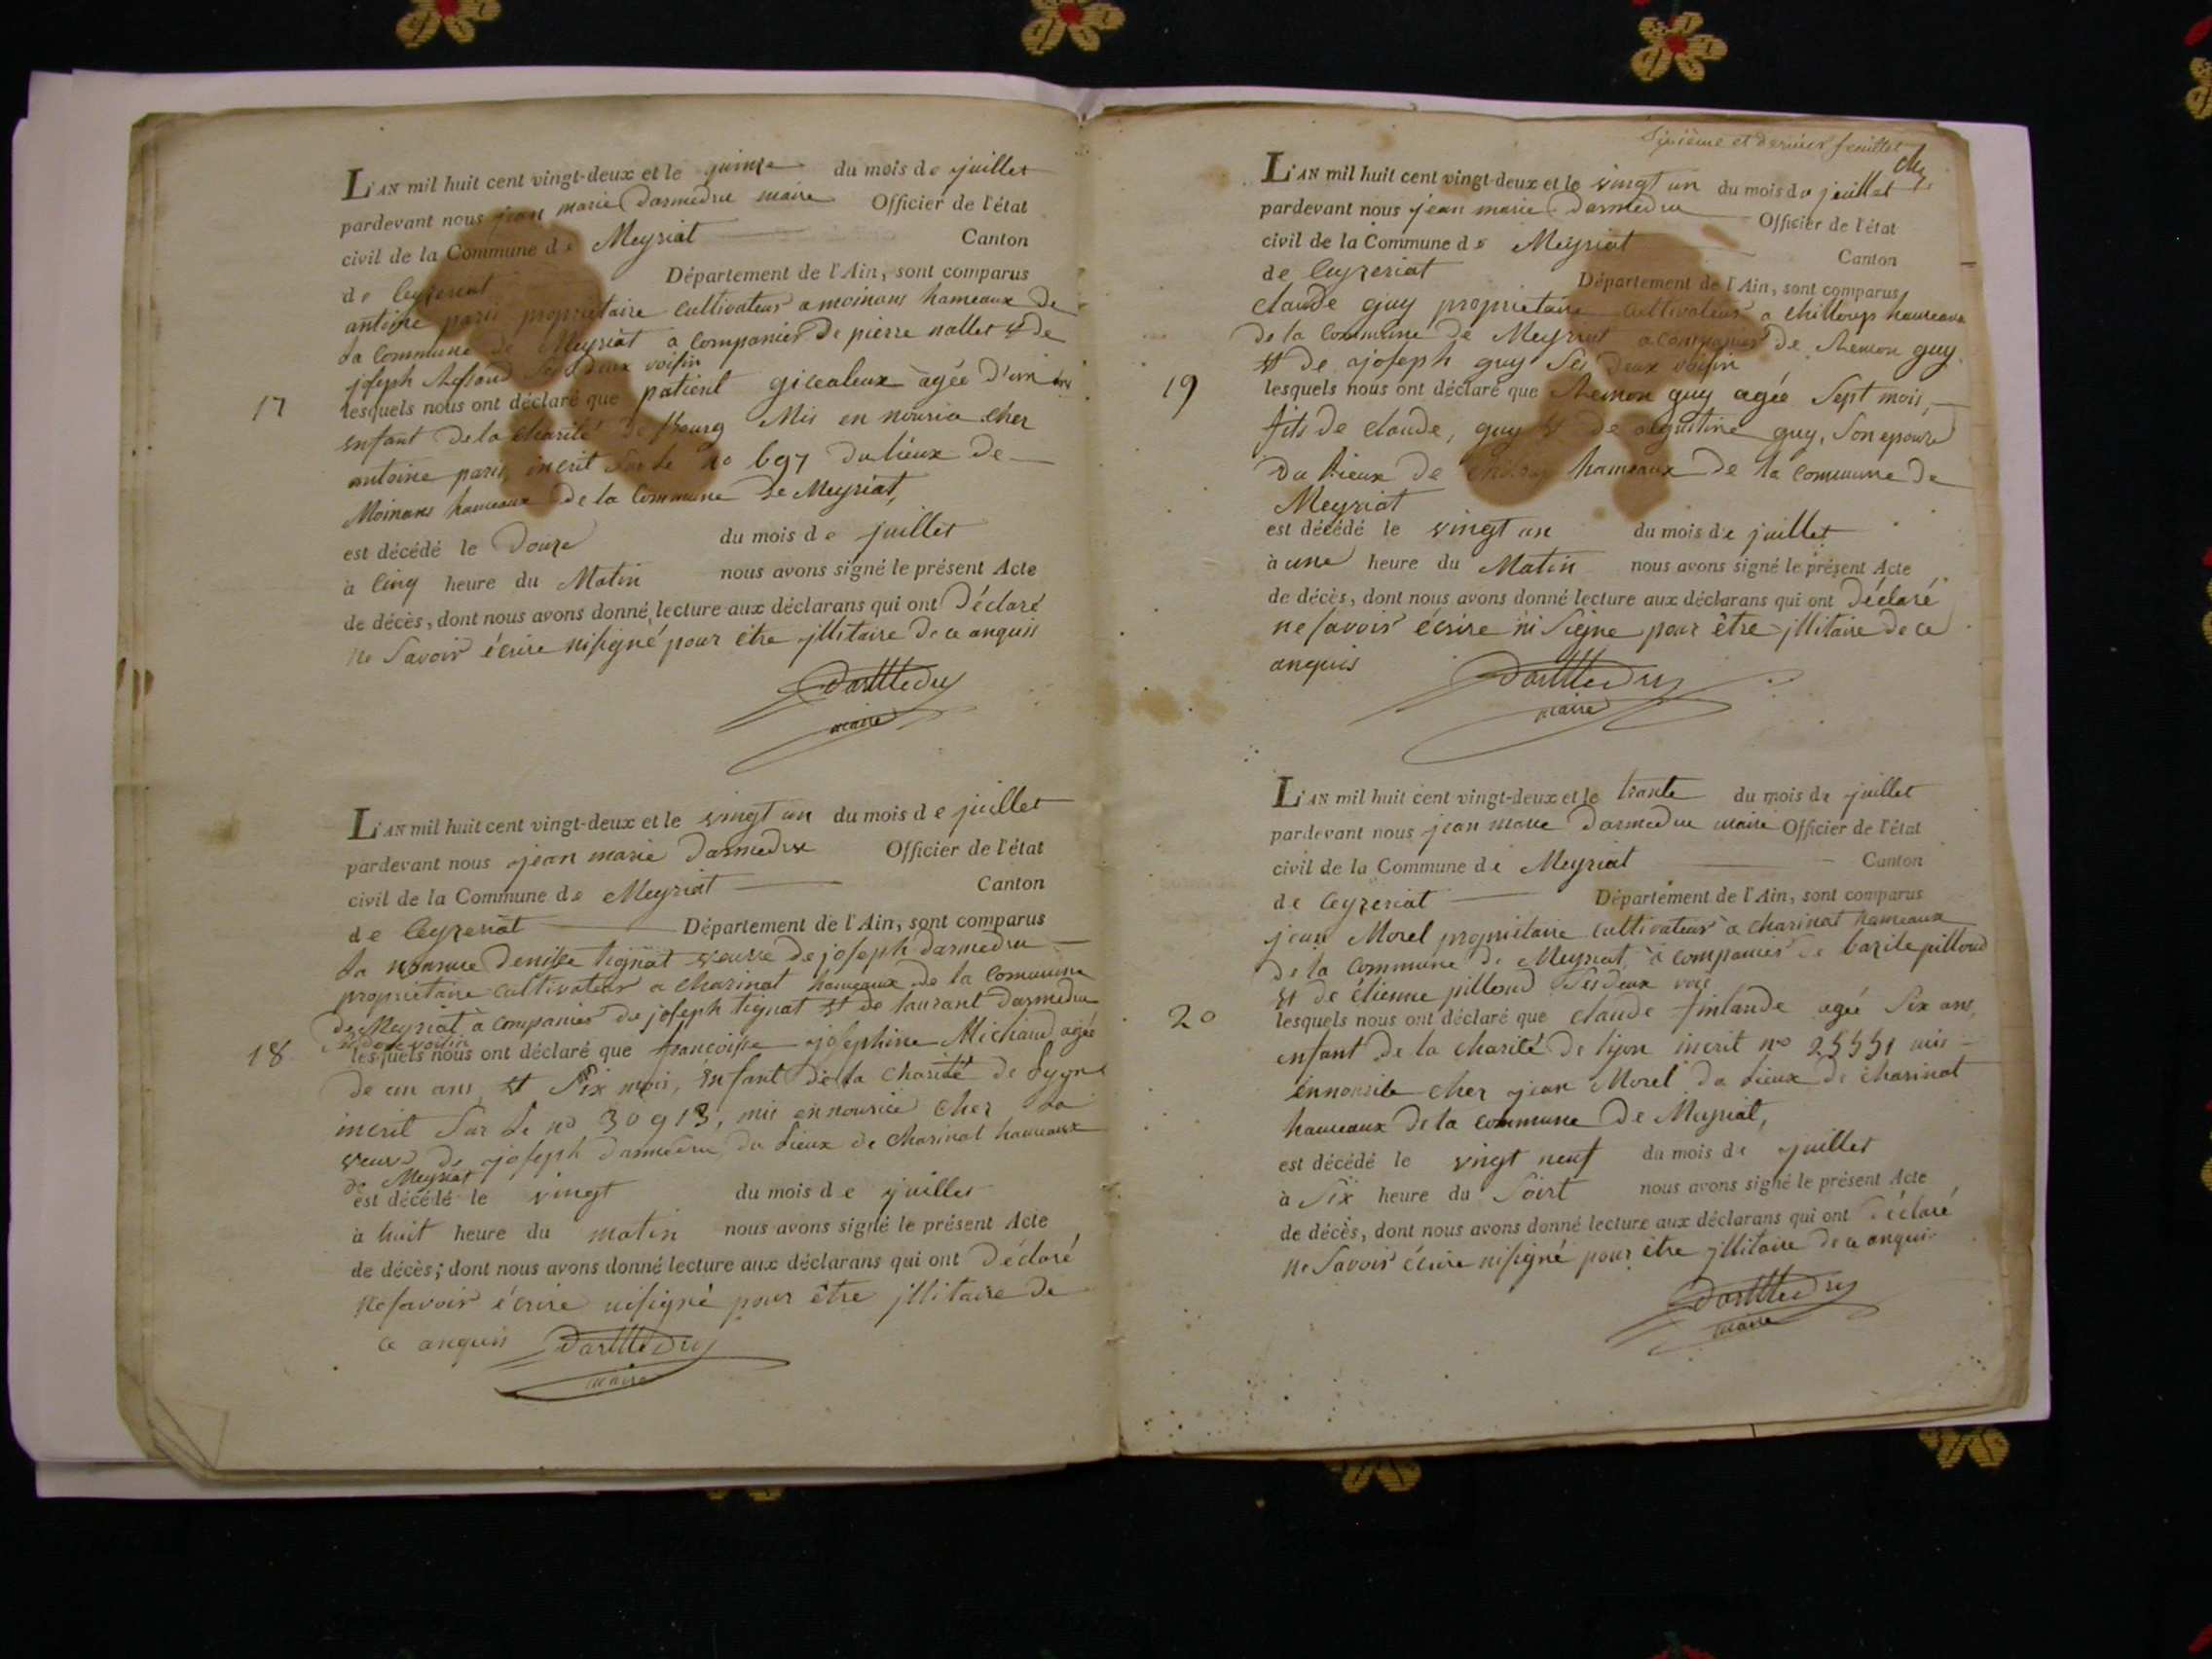 17
L'AN mil huit cent vingt-deux et le quinze du mois de juillet
pardevant nous jean marie Darmedru maire Officier de l'état
civil de la Commune de Meyriat Canton
de Ceyzeriat Département de l'Ain, sont comparus
antoine paris propriétaire cultivateur a moinans hameaux de
la Commune de Meyriat a companier de pierre nallet et de
joseph ses deux voisin
lesquels nous ont déclaré que patient agée d'un an
enfant de la charité de Bourg Mis en nouria cher
antoine paris, inscrit sur le no 697 du lieux de
Moinans hameaux de la Commune de Meyriat,
est décédé le douze du mois de juillet
à cinq heure du Matin nous avons signé le présent Acte
de décès, dont nous avons donné lecture aux déclarans qui ont Déclaré
ne savoir écrire ni signé pour être jllitaire de ce anquis
Darmedru
maire
18
L'AN mil huit cent vingt-deux et le vingt un du mois de juillet
pardevant nous jean marie Darmedru Officier de l'état
civil de la Commune de Meyriat Canton
de Ceyzeriat Département de l'Ain, sont comparus
la nommé Denise tignat veuve de joseph darmedru
propriétaire cultivateur a Charinat hameaux de la Commune
de Meyriat à companier de joseph tignat et de laurant Darmedru
ses deux voisin
lesquels nous ont déclaré que francoisse josephine Michaud agée
de un ans et six mois, enfant de la charité de Lyon
incrit sur le no 30913, mis en nourice cher la
veuve de joseph Darmedru du lieux de Charinat hameaux
de Meyriat
est décédé le vingt du mois de juillet
à huit heure du matin nous avons signé le présent Acte
de décès; dont nous avons donné lecture aux déclarans qui ont Déclaré
ne savoir écrire ni signé pour être jllitaire de
ce anquis Darmedru
maire
Sixième et dernier feuillet
19
L'AN mil huit cent vingt-deux et le vingt un du mois de juillet
pardevant nous jean marie darmedru Officier de l'état
civil de la Commune de Meyriat Canton
de Ceyzeriat Département de l'Ain, sont comparus
claude guy propriétaire cultivateur a chilloup hameaux
de la commune de Meyriat a companier de Remon guy
et de joseph guy ses deux voisin
lesquels nous ont déclaré que Remon guy agée sept mois,
fils de claude, guy et de guy, son epouse
du lieux de hameaux de la commune de
Meyriat
est décédé le vingt un du mois de juillet
à une heure du Matin nous avons signé le présent Acte
de décès, dont nous avons donné lecture aux déclarans qui ont Déclaré
ne savoir écrire ni signe pour être jllitaire de ce
anquis Darmedru
maire
20
L'AN mil huit cent vingt-deux et le trante du mois de juillet
pardevant nous jean marie Darmedru maire Officier de l'état
civil de la Commune de Meyriat Canton
de Ceyzeriat Département de l'Ain, sont comparus
jean Morel propriétaire cultivateur a charinat hameaux
de la commune de Meyriat à companier de bazile pilloud
et de étienne pilloud ses deux
lesquels nous ont déclaré que claude finlande agée six ans,
enfant de la charité de lyon incrit no 25551 mis
cher jean Morel du lieux de charinat
hameaux de la commune de Meyriat,
est décédé le vingt neuf du mois de juillet
à six heure du soirt nous avons signé le présent Acte
de décès, dont nous avons donné lecture aux déclarans qui ont Déclaré
ne savoir écrire ni signé pour être jllitaire de ce anquis
Darmedru
maire